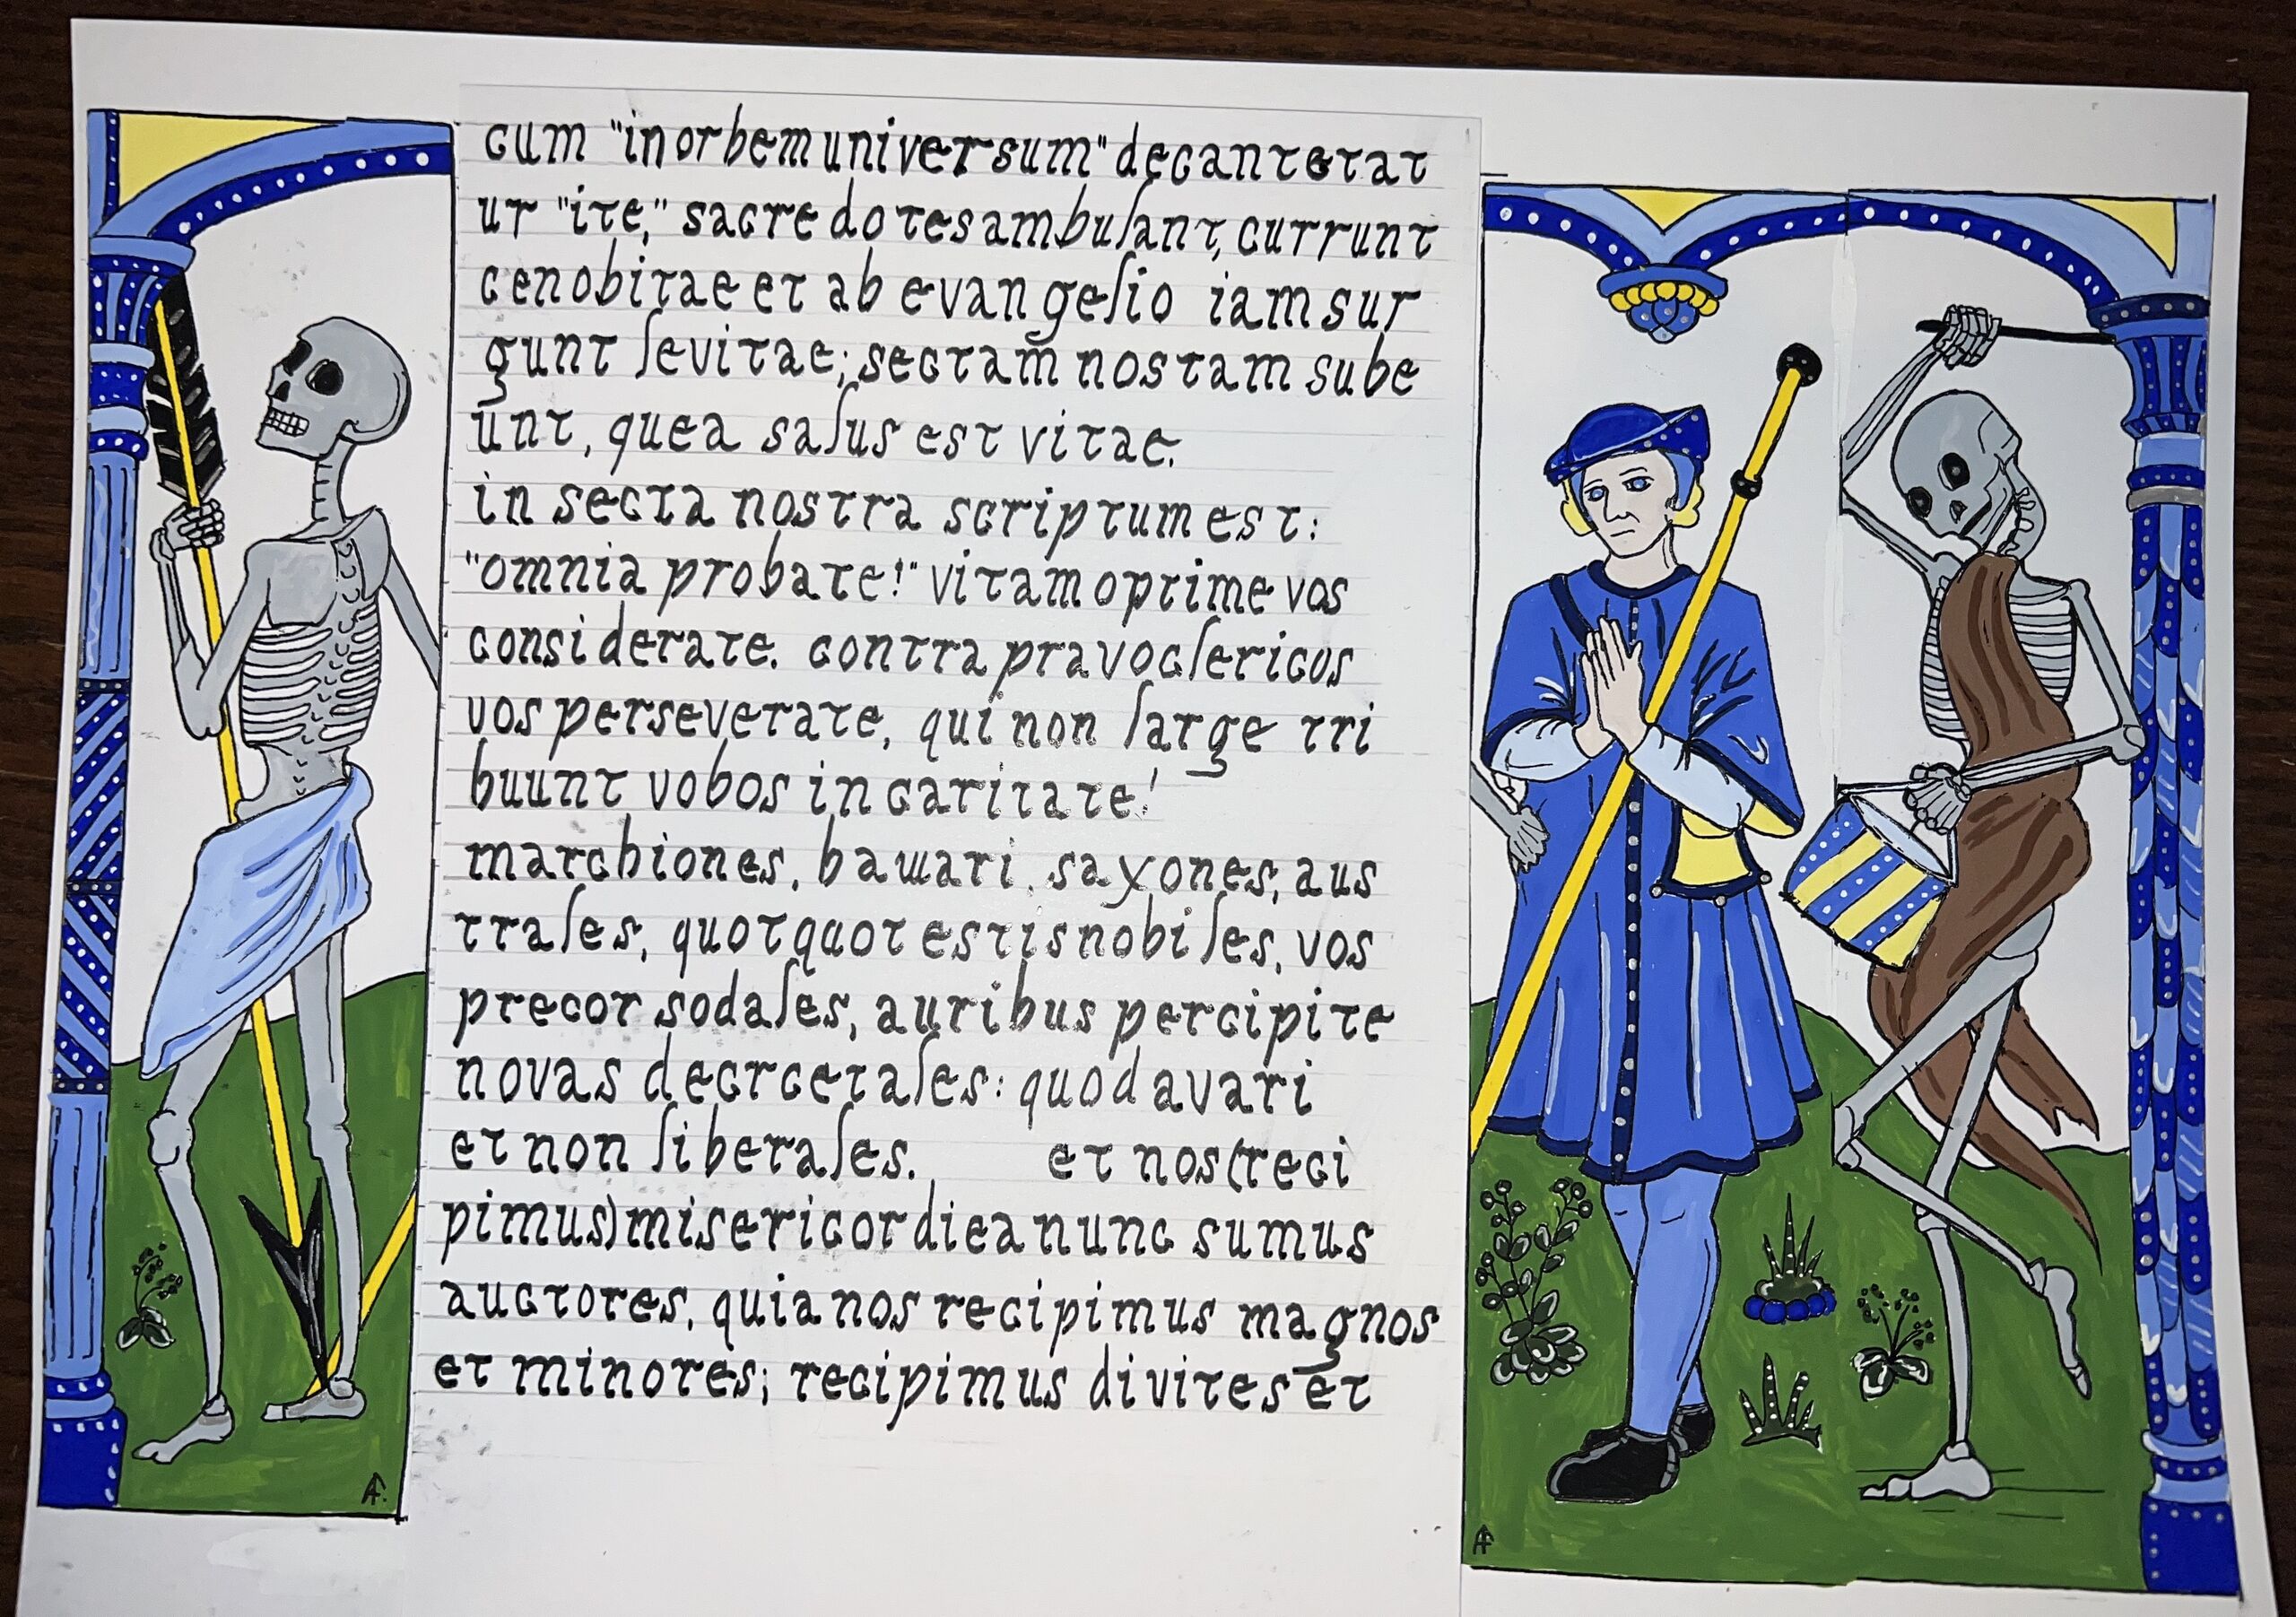 cum "in orbem universum" decantetat
ur "ite," sacredotes ambulant, currunt
cenobitae et ab evangelio iam sur
gunt levitae; sectam nostam sube
unt, quea salus est vitae.
in secta nostra scriptum est:
"omnia probate!" vitam optime vos
considerate. contra pravo clericos
vos perseverate, qui non large tri
buunt vobos in caritate!
marchiones, bawari, saxones, aus
trales, quotquot estis nobiles, vos
precor sodales, auribus percipite
novas decrcetales: quod avari
et non liberales. et nos (reci
pimus) misericordiea nunc sumus
auctores, quia nos recipimus magnos
et minores; recipimus divites et
AF.
AF